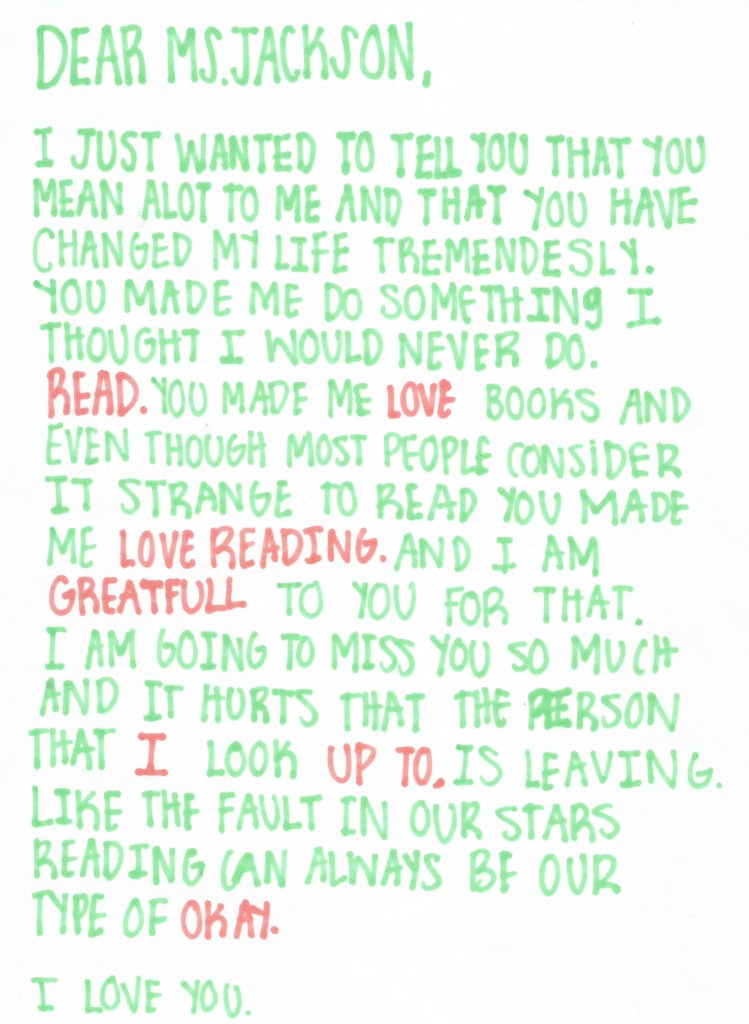 DEAR MS.JACKSON,
I JUST WANTED TO TELL YOU THAT YOU
MEAN ALOT TO ME AND THAT YOU HAVE
CHANGED MY LIFE TREMENDESLY.
YOU MADE ME DO SOMETHING I
THOUGHT I WOULD NEVER DO.
READ. YOU MADE ME LOVE BOOKS AND
EVEN THOUGH MOST PEOPLE CONSIDER
IT STRANGE TO READ YOU MADE
ME LOVE READING. AND I AM
GREATFULL TO YOU FOR THAT.
I AM GOING TO MISS YOU SO MUCH
AND IT HURTS THAT THE PERSON
THAT I LOOK UP TO. IS LEAVING.
LIKE THE FAULT IN OUR STARS
READING CAN ALWAYS BE OUR
TYPE OF OKAY.
I LOVE YOU.